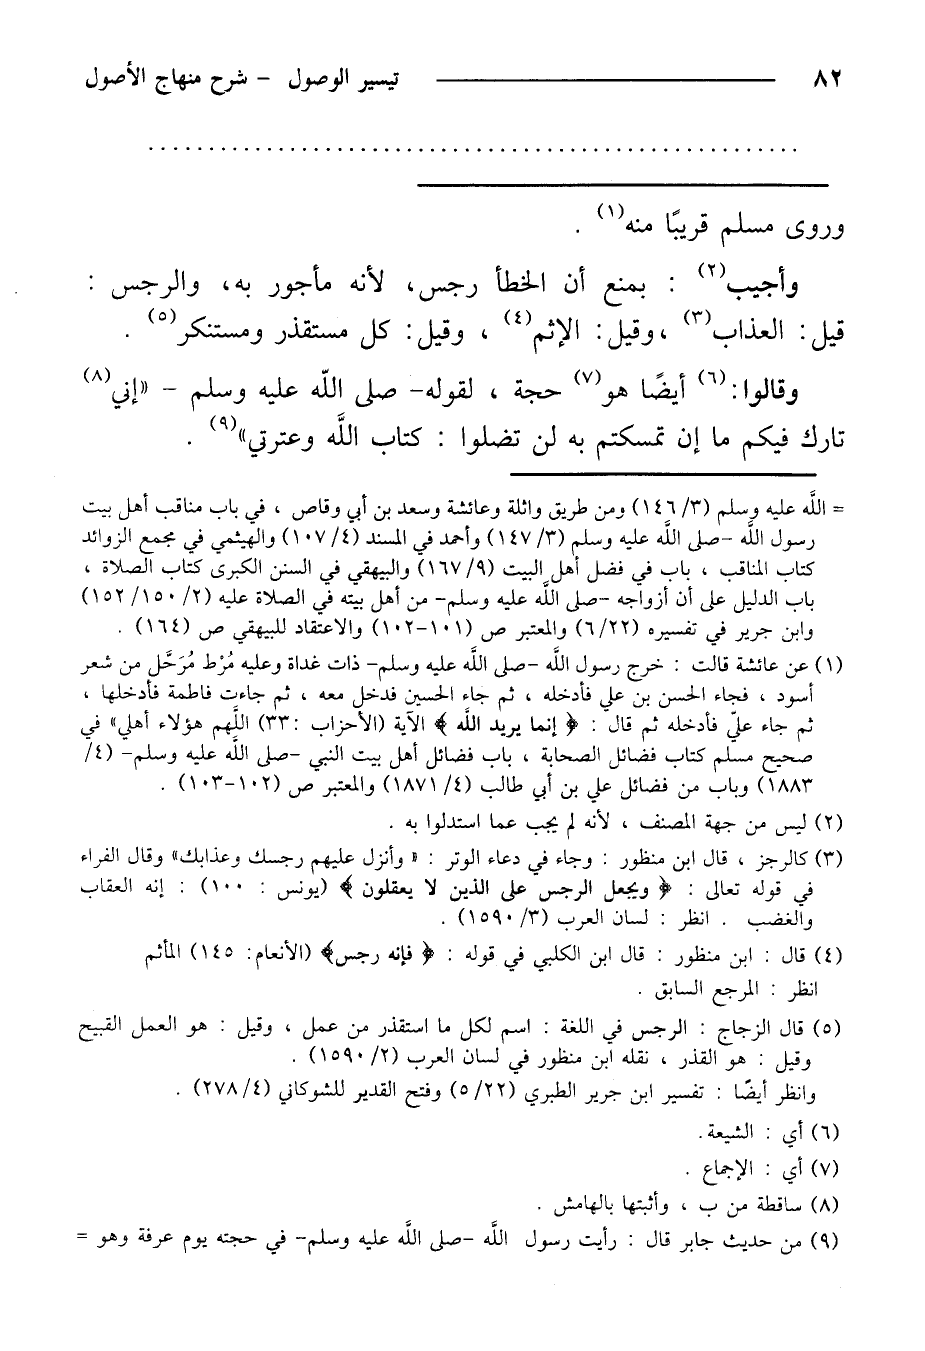 ٨٢ تيسير الوصول - شرح منهاج الأصول
وروى مسلم قريبًا منه(١) .
وأجيب(٢) : بمنع أن الخطأ رجس، لأنه مأجور به، والرجس :
قيل: العذاب(٣) ،وقيل: الإثم(٤) ، وقيل: كل مستقذر ومستنكر(٥) .
وقالوا:(٦) أيضًا هو(٧) حجة ، لقوله- صلى اللّه عليه وسلم - «إني(٨)
تارك فيكم ما إن تمسكتم به لن تضلوا : كتاب اللَّه وعترتي»(٩) .
= اللَّه عليه وسلم (٣/ ١٤٦) ومن طريق واثلة وعائشة وسعد بن أبي وقاص ، في باب مناقب أهل بيت
رسول اللَّه -صلى اللَّه عليه وسلم (٣/ ١٤٧) وأحمد في المسند (٤/ ١٠٧) والهيثمي في مجمع الزوائد
كتاب المناقب ، باب في فضل أهل البيت (٩/ ١٦٧) والبيهقي في السنن الكبرى كتاب الصلاة ،
باب الدليل على أن أزواجه -صلى اللَّه عليه وسلم- من أهل بيته في الصلاة عليه (٢/ ١٥٠/ ١٥٢)
وابن جرير في تفسيره (٢٢/ ٦) والمعتبر ص (١٠١-١٠٢) والاعتقاد للبيهقي ص (١٦٤) .
(١) عن عائشة قالت : خرج رسول اللَّه -صلى اللَّه عليه وسلم- ذات غداة وعليه مُرْط مُرَحَّل من شعر
أسود ، فجاء الحسن بن علي فأدخله ، ثم جاء الحسين فدخل معه ، ثم جاءت فاطمة فأدخلها ،
ثم جاء عليّ فأدخله ثم قال : ﴿ إنما يريد اللَّه ﴾ الآية (الأحزاب :٣٣) اللَّهم هؤلاء أهلي» في
صحيح مسلم كتاب فضائل الصحابة ، باب فضائل أهل بيت النبي -صلى اللَّه عليه وسلم- (٤/
١٨٨٣) وباب من فضائل علي بن أبي طالب (٤/ ١٨٧١) والمعتبر ص (١٠٢-١٠٣) .
(٢) ليس من جهة المصنف ، لأنه لم يجب عما استدلوا به .
(٣) كالرجز ، قال ابن منظور : وجاء في دعاء الوتر : « وأنزل عليهم رجسك وعذابك» وقال الفراء
في قوله تعالى : ﴿ ويجعل الرجس على الذين لا يعقلون ﴾ (يونس : ١٠٠) : إنه العقاب
والغضب . انظر : لسان العرب (٣/ ١٥٩٠) .
(٤) قال : ابن منظور : قال ابن الكلبي في قوله : ﴿ فإنه رجس﴾ (الأنعام: ١٤٥) المأثم
انظر : المرجع السابق .
(٥) قال الزجاج : الرجس في اللغة : اسم لكل ما استقذر من عمل ، وقيل : هو العمل القبيح
وقيل : هو القذر ، نقله ابن منظور في لسان العرب (٢/ ١٥٩٠) .
وانظر أيضًا : تفسير ابن جرير الطبري (٢٢/ ٥) وفتح القدير للشوكاني (٤/ ٢٧٨) .
(٦) أي : الشيعة.
(٧) أي : الإجماع .
(٨) ساقطة من ب ، وأثبتها بالهامش .
(٩) من حديث جابر قال : رأيت رسول اللَّه -صلى اللَّه عليه وسلم- في حجته يوم عرفة وهو =